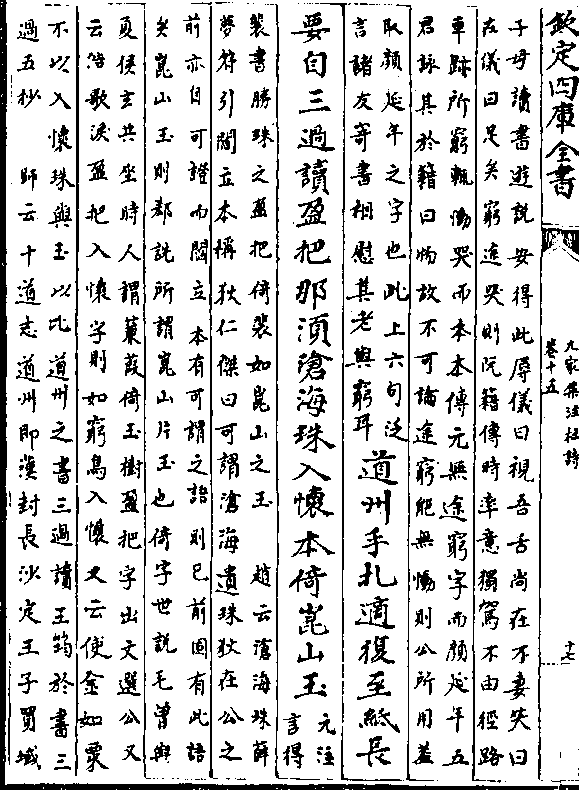 欽定四庫全書
九家集注杜詩
卷十五
十七
子母讀書遊說安得此辱儀曰視吾舌尚在不妻笑曰
在儀曰足矣窮途哭則阮籍傳時率意獨駕不由徑路
車跡所窮輒慟哭而本本傳元無途窮字而顔延年五
君詠其於籍曰物故不可論途窮能無慟則公所用蓋
取顔延年之字也此上六句泛
言諸友寄書相慰其老與窮耳
道州手札適復至紙長
要自三過讀盈把那須滄海珠入懷本倚崑山玉
元注
言得
裴書勝珠之盈把倚裴如崑山之玉 趙云滄海珠薛
夢符引閻立本稱狄仁傑曰可謂滄海遺珠狄在公之
前亦自可證而閻立本有可謂之語則已前固有此語
矣崑山玉則郤詵所謂崑山片玉也倚字世說毛曾與
夏侯玄共坐時人謂蒹葭倚玉樹盈把字出文選公又
云浩歌淚盈把入懷字則如窮鳥入懷又云使金如粟
不以入懷珠與玉以比道州之書三過讀王筠於書三
過五抄 師云十道志道州即漢封長沙定王子買城